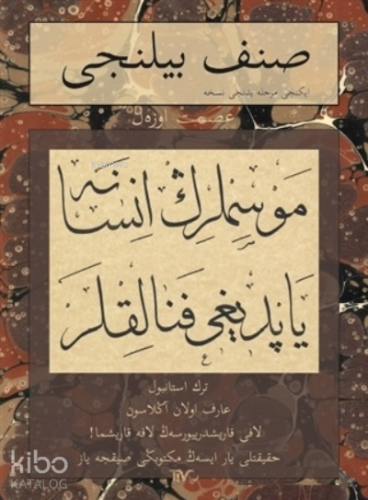 صنف بیلنجی
ایكنجی مرحله یلنجی نسخه
عصمت اوزەل
موسملرڭ انسانه
یاپدیغی فنالقلر
ترك استانبول
عارف اولان آڭلاسون
لافی قاریشدیرییورسەڭ لافه قاریشما!
حقیقتلی یار ایسەڭ مكتوبڭی صیقجه یاز
kibo
KATALOG